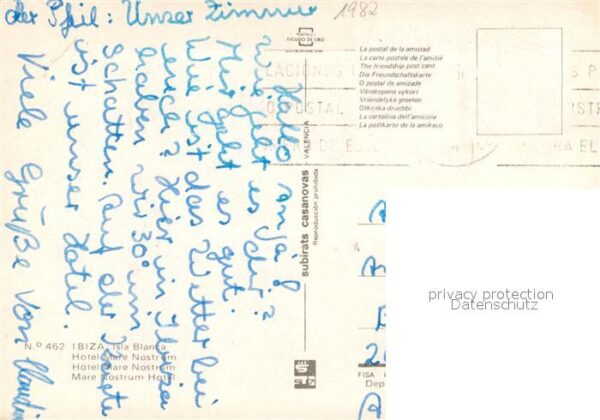 der Pfeil: Unser Zimmer
1982
Hallo Anja
wie geht es dir?
Mir geht es gut.
Wie ist das Wetter bei
euch? Hier in Ibiza
haben wir 30° im
Schatten. Auf der Karte
ist unser Hotel.
Viele Grüße von
POSTALES
ESCUDO DE ORO
La postal de la amistad
La carte postale de l'amitié
The friendship post card
Die Freundschaftskarte
O postal de amizade
Vänskapens vykort
Vriendelyke groeten
Otkritka druchbi
La cartolina dell'amicizia
La poŝtkarto de la amikeco
subirats casanovas - VALENCIA
Reproducción prohibida
N.º 462 IBIZA, Isla Blanca
Hotel Mare Nostrum
Hotel Mare Nostrum
Mare Nostrum Hotel
FISA - I
Dep
privacy protection
Datenschutz